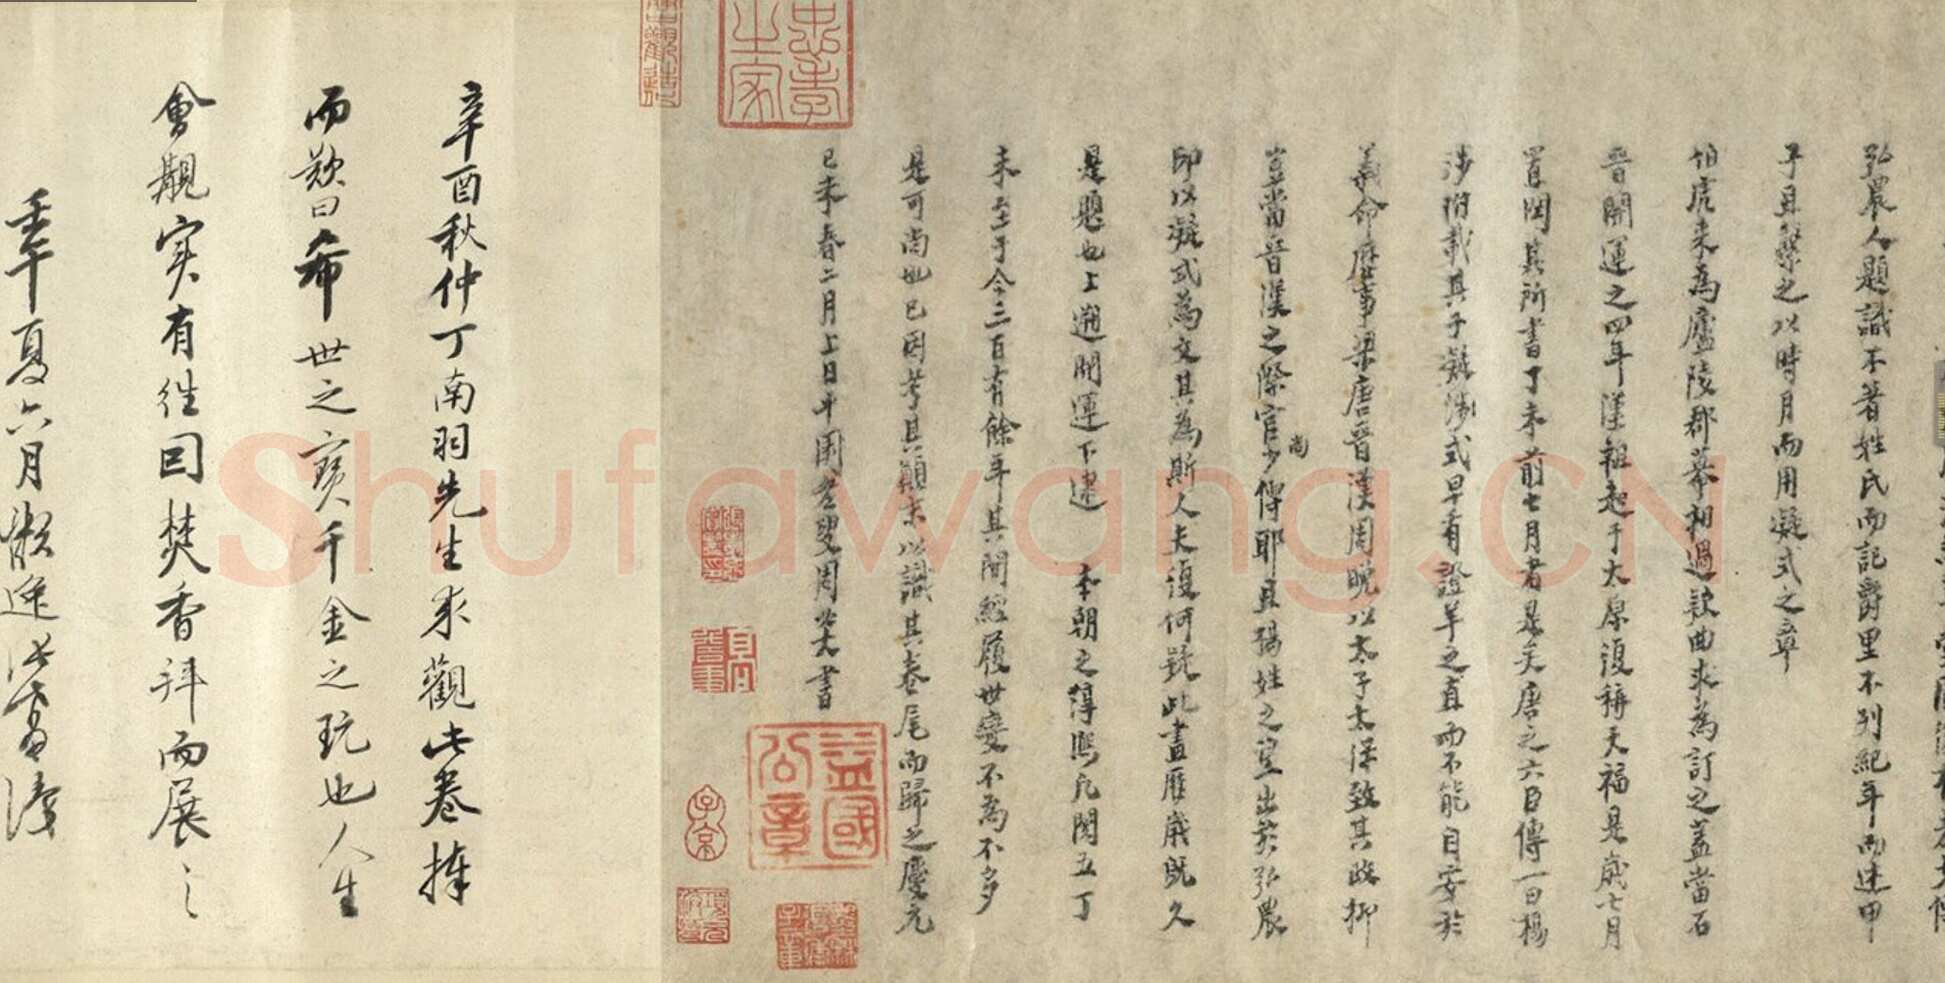 弘農人題識不著姓氏而記爵里不列紀年而述甲
子且繫之以時月而用凝式之章
伯虎來為廬陵郡幕相過款曲求為訂之蓋當石
晉開運之四年漢祖起于太原復稱天福是歲七月
首閏其所書丁未前七月者是矣唐之六臣傳一曰楊
涉附載其子凝涉式早有證羊之直而不能自安於
義命歷事梁唐晉漢周晚以太子太保致其政抑
豈當晉漢之際官尚少傅耶且楊姓之望出於弘農
印以凝式為文其為斯人夫復何疑此畫歷歲既久
是題也上遡開運下逮 本朝之淳熙凡閱五丁
未至于今三百有餘年其間經履世變不為不多
是可尚也已因考其顛末以識其卷尾而歸之慶元
己未春二月上日平園老叟周必大書
忠孝之家
益國公章
子京
辛酉秋仲丁南羽先生來觀此卷捧
而歎曰希世之寶千金之玩也人生
會覯實有往因焚香拜而展之
壬午夏六月
Shufawang.CN